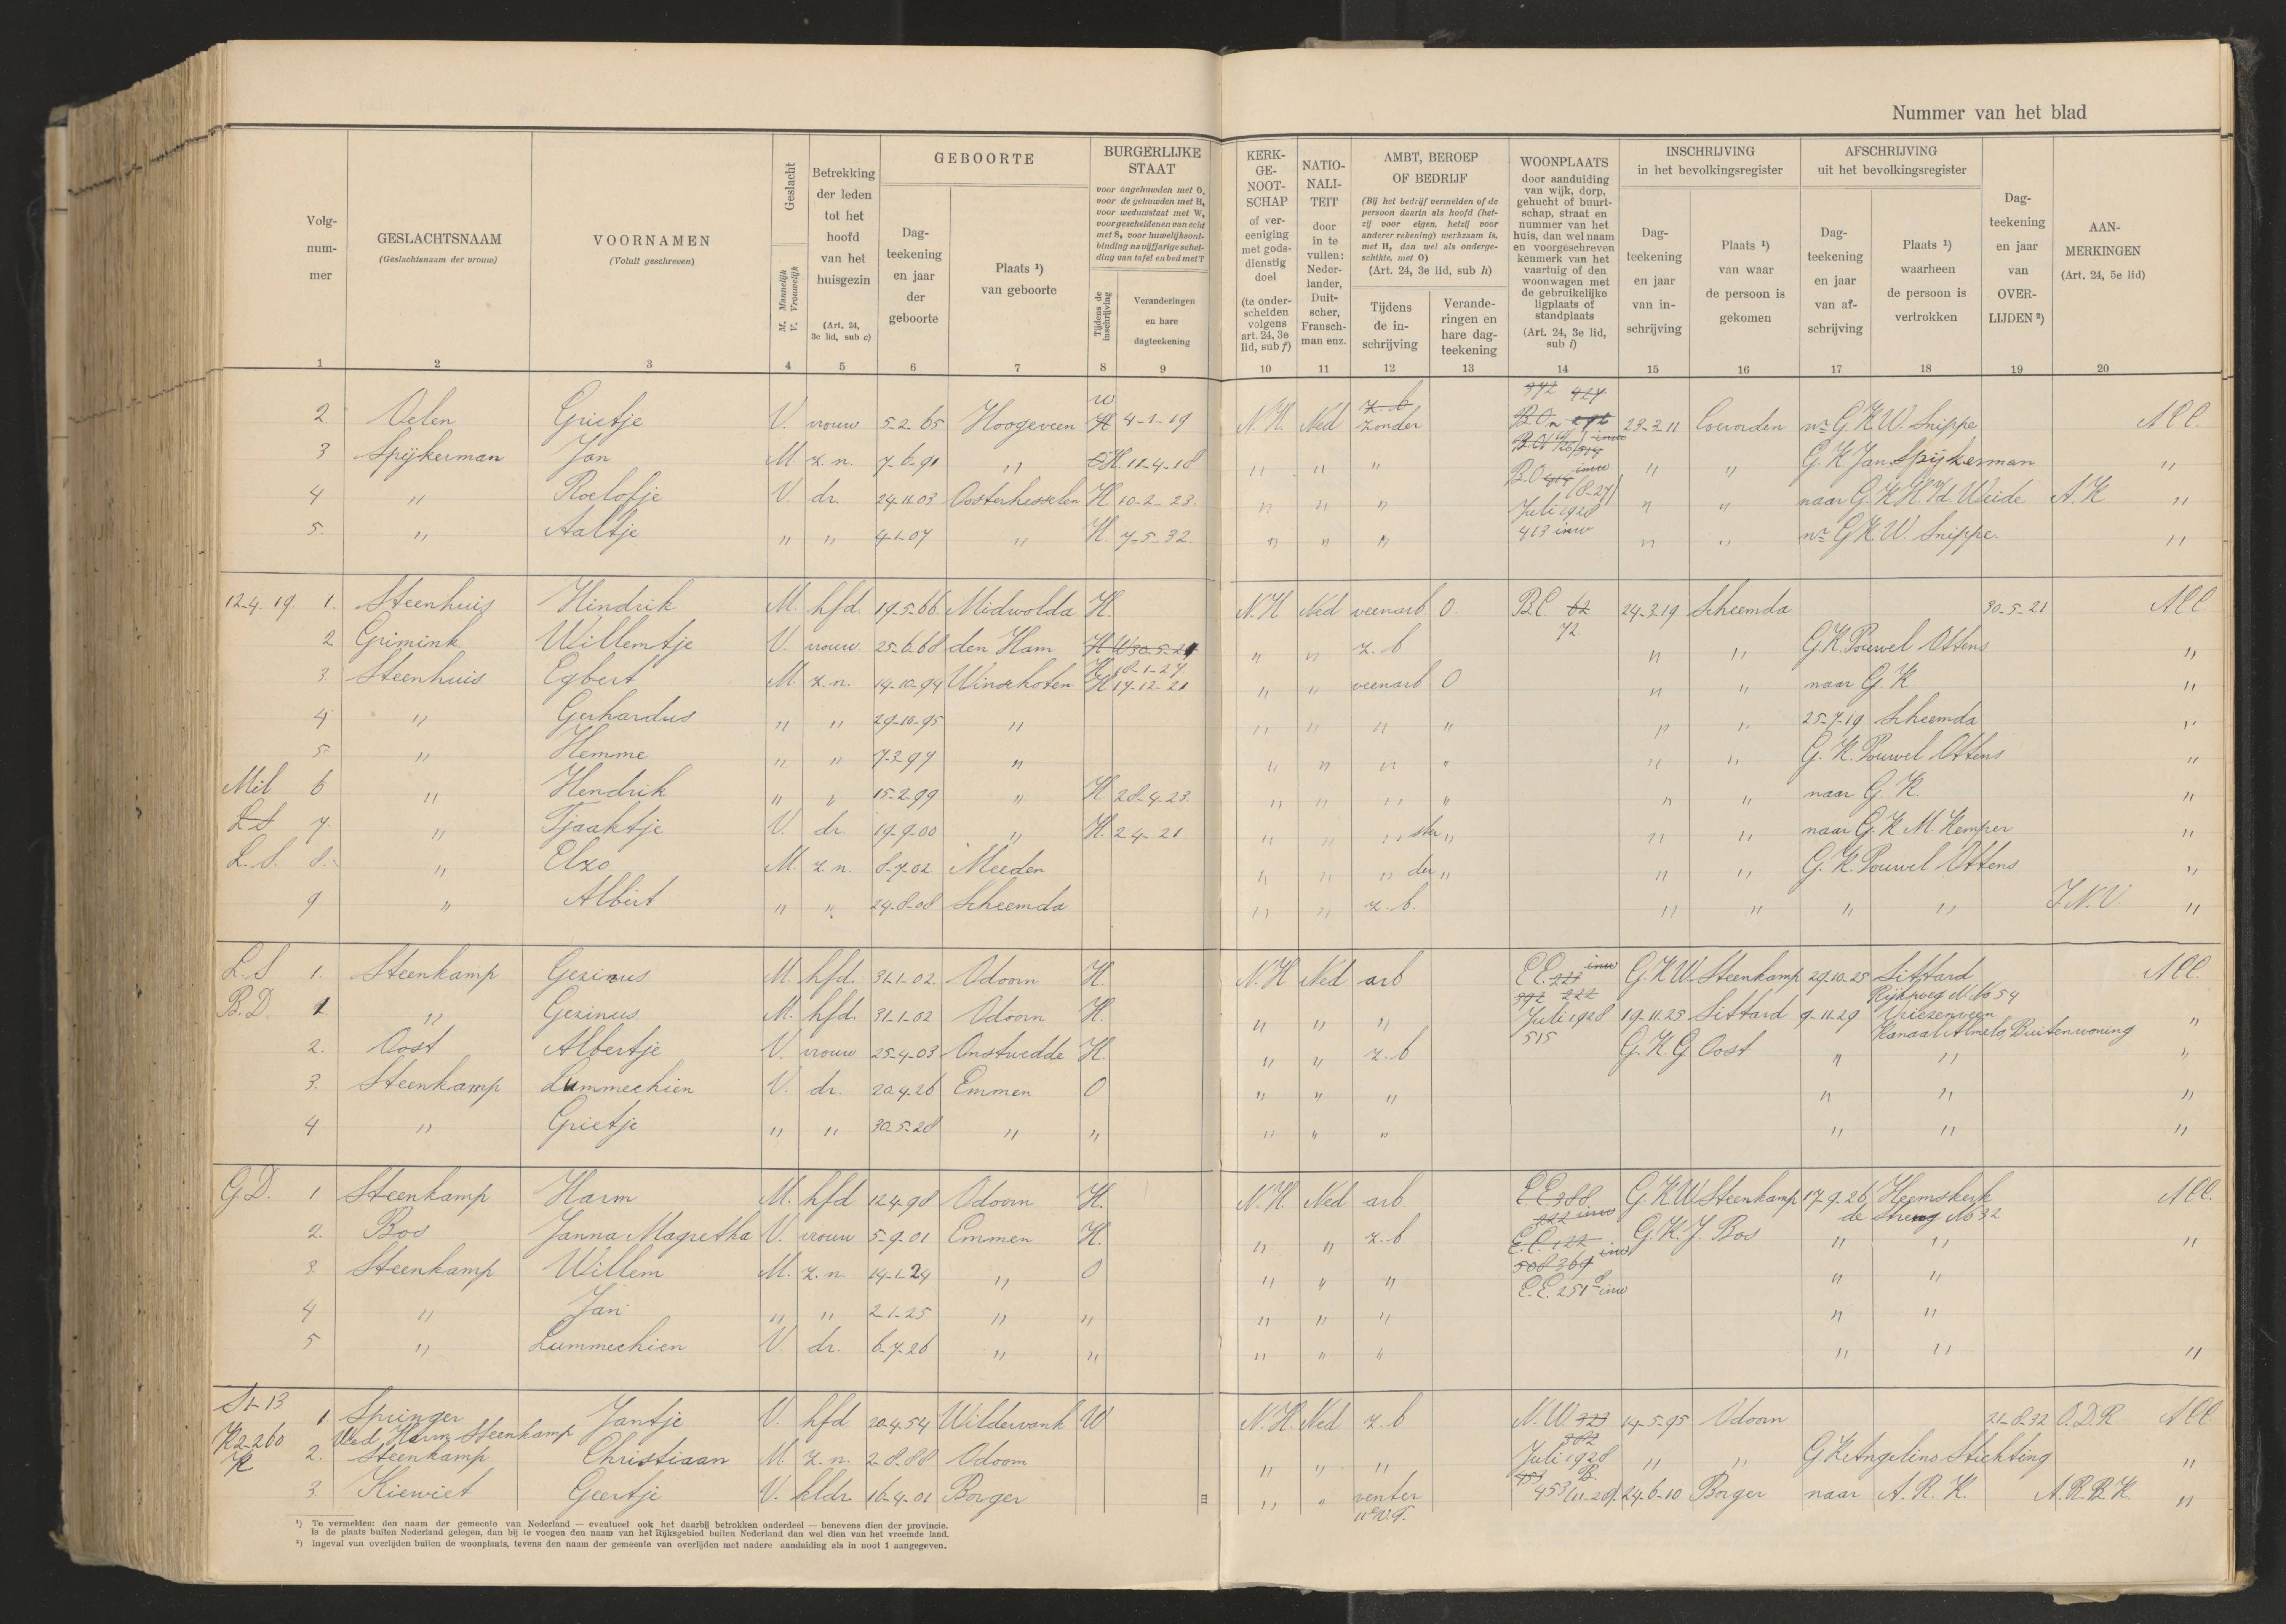 Nummer van het blad
Volg-
num-
mer
GESLACHTSNAAM
(Geslachtsnaam der vrouw)
VOORNAMEN
(Voluit geschreven)
Geslacht
M. Mannelijk
V. Vrouwelijk
Betrekking
der leden
tot het
hoofd
van het
huisgezin
(Art. 24,
3e lid, sub c)
GEBOORTE
Dag-
teekening
en jaar
der
geboorte
Plaats ¹)
van geboorte
BURGERLIJKE
STAAT
voor ongehuwden met O,
voor de gehuwden met H,
voor weduwstaat met W,
voor gescheidenen van echt
met S, voor huwelijksont-
binding na vijfjarige schei-
ding van tafel en bed met T
Tijdens de
inschrijving
Veranderingen
en hare
dagteekening
KERK-
GE-
NOOT-
SCHAP
of ver-
eeniging
met gods-
dienstig
doel
(te onder-
scheiden
volgens
art. 24, 3e
lid, sub f)
NATIO-
NALI-
TEIT
door
in te
vullen:
Neder-
lander,
Duit-
scher,
Fransch-
man enz.
AMBT, BEROEP
OF BEDRIJF
(Bij het bedrijf vermelden of de
persoon daarin als hoofd (het-
zij voor eigen, hetzij voor
anderer rekening) werkzaam is,
met H, dan wel als onderge-
schikte, met O)
(Art. 24, 3e lid, sub h)
Tijdens
de in-
schrijving
Verande-
ringen en
hare dag-
teekening
WOONPLAATS
door aanduiding
van wijk, dorp,
gehucht of buurt-
schap, straat en
nummer van het
huis, dan wel naam
en voorgeschreven
kenmerk van het
vaartuig of den
woonwagen met
de gebruikelijke
ligplaats of
standplaats
(Art. 24, 3e lid,
sub i)
INSCHRIJVING
in het bevolkingsregister
Dag-
teekening
en jaar
van in-
schrijving
Plaats ¹)
van waar
de persoon is
gekomen
AFSCHRIJVING
uit het bevolkingsregister
Dag-
teekening
en jaar
van af-
schrijving
Plaats ¹)
waarheen
de persoon is
vertrokken
Dag-
teekening
en jaar
van
OVER-
LIJDEN ²)
AAN-
MERKINGEN
(Art. 24, 5e lid)
1 2 3 4 5 6 7 8 9 10 11 12 13 14 15 16 17 18 19 20
372 427
W z.b
2 Oelen Grietje V. vrouw 5-2-65 Hoogeveen H 4-1-19 N.H. Ned zonder 23-3-11 Coevorden nr G.K.W. Snippe All.
3 Spijkerman Jan M z.n. 7-6-91 " O H. 11-4-18 " " " " " G.K Jan Spijkerman "
4 " Roelofje V. dr. 24-11-03 Oosterhesselen H 10-2-23. " " " Juli 1928 " " naar G.K H. v/d Weide A.K "
5. " Aaltje " " 4-1-07 " H. 7-5-32. " " " 413 inw " " nr G.K.W. Snippe. "
12-4-19. 1. Steenhuis Hindrik M. hfd. 19-5-66 Midwolda H. N.H Ned veenarb O. B.C. 62 24-3-19 Scheemda 30-5-21 All
72
2 Grimink Willemtje V. vrouw 25-6-68 den Ham H W 30-5-21 " " z.b " " G.K. Pouwel Ottens "
H 18-1-27
3. Steenhuis Egbert M. z.n. 14-10-94 Winschoten H 17-12-21 " " veenarb O " " naar G.K. "
4 " Gerhardus " " 29-10-95 " " " " " " " 25-7-19 Scheemda "
5 " Hemme " " 7-3-97 " " " " " " " G.K. Pouwel Ottens "
Mil 6 " Hendrik " " 15-2-99 " H 28-4-23. " " " " " " naar G.K. "
L.S 7. " Tjaaktje V. dr. 19-9-00 " H. 2-4-21 " " " ster " " " naar G.K M. Kemper "
L.S. 8. " Elzo M. z.n. 8-7-02 Meeden " " " der " " " G.K. Pouwel Ottens "
9 " Albert " " 24-8-08 Scheemda " " z.b. " " " " I.N.V. "
L.S 1. Steenkamp Gezinus M. hfd. 31-1-02. Odoorn H. N.H Ned arb E.E. 223 inw G.K W. Steenkamp 29-10-25 Sittard All.
392 222 Rijksweg N. No 54
B.D. 1 " Gezinus M. hfd. 31-1-02 Odoorn H. " " " Juli 1928 19-11-25 Sittard 9-11-29 Vriezenveen "
515 Kanaal Almelo, Buitenwoning
2. Oost Albertje V. vrouw 25-4-03 Onstwedde H. " " z.b G.K.G. Oost " " "
3. Steenkamp Lummechien V. dr. 20-4-26 Emmen O " " " " " "
4 " Grietje " " 30-5-28 " " " " " " " "
G.D. 1 Steenkamp Harm M. hfd 12-4-98 Odoorn H. N.H. Ned arb. E.E. 388 G.K W Steenkamp 17-9-26 Heemskerk All.
222 inw de Streng No 32
2. Bos Janna Magretha V. vrouw 5-9-01 Emmen H. " " z.b. E.E. 122 G.K.J. Bos " " "
508 369 inw
3. Steenkamp Willem M. z.n. 14-1-24 " O " " " " "
E.E. 251 inw
4 " Jan " " 2-1-25 " " " " " " "
5 " Lummechien V. dr. 6-7-26 " " " " " " " "
St-13
1 Springer Jantje V. hfd 20-4-54 Wildervank W N.H. Ned z.b N.W. 323 14-5-95 Odoorn 21-8-32 O.D.R. All
K2-260 Wed. Harm Steenkamp 382
2. Steenkamp Christiaan M. z.n. 2-8-88 Odoorn " " " Juli 1928 " " G.K. Angelino Stichting "
3. Kiewiet Geertje V. kldr. 16-4-01 Borger " " venter 453 (11-28) 24-6-10 Borger naar A.R.K. A.R.B.K. "
¹) Te vermelden: den naam der gemeente van Nederland — eventueel ook het daarbij betrokken onderdeel — benevens dien der provincie.
Is de plaats buiten Nederland gelegen, dan bij te voegen den naam van het Rijksgebied buiten Nederland dan wel dien van het vreemde land.
²) Ingeval van overlijden buiten de woonplaats, tevens den naam der gemeente van overlijden met nadere aanduiding als in noot 1 aangegeven.